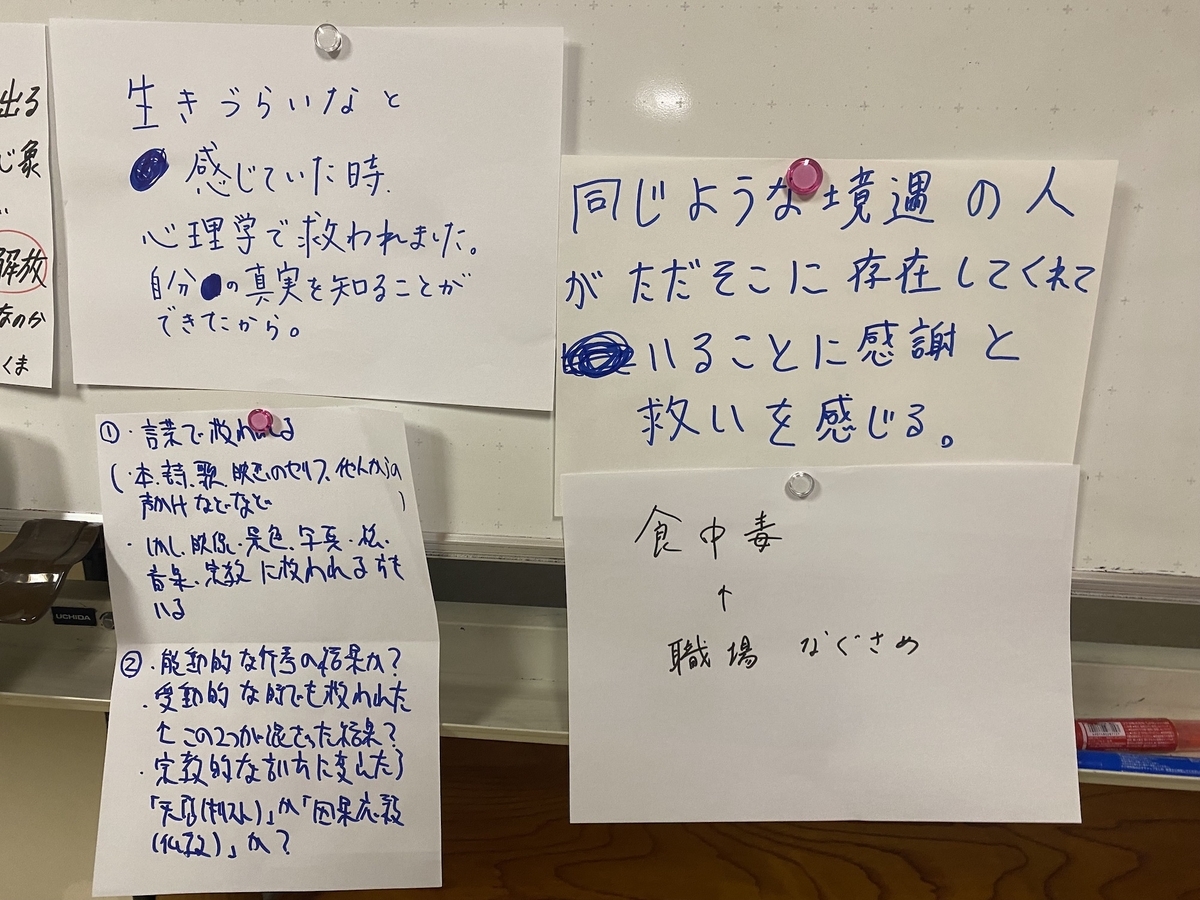 出る
象
解放
なのか
くま
生きづらいなと
感じていた時
心理学で救われました。
自分の真実を知ることが
できたから。
同じような境遇の人
がただそこに存在してくれて
いることに感謝と
救いを感じる。
①・言葉で救われる
(本、詩、歌、映画のセリフ、他人からの
声かけなどなど)
・しかし、映像、景色、写真、絵、
音楽、宗教に救われる方も
いる
UCHIDA
②・能動的な行為の結果か?
・受動的な時でも救われた
↑この2つが混ざった結果?
・宗教的な言い方に変えたら
「天啓(キリスト)」か「因果応報
(仏教)」か?
食中毒
↑
職場 なぐさめ